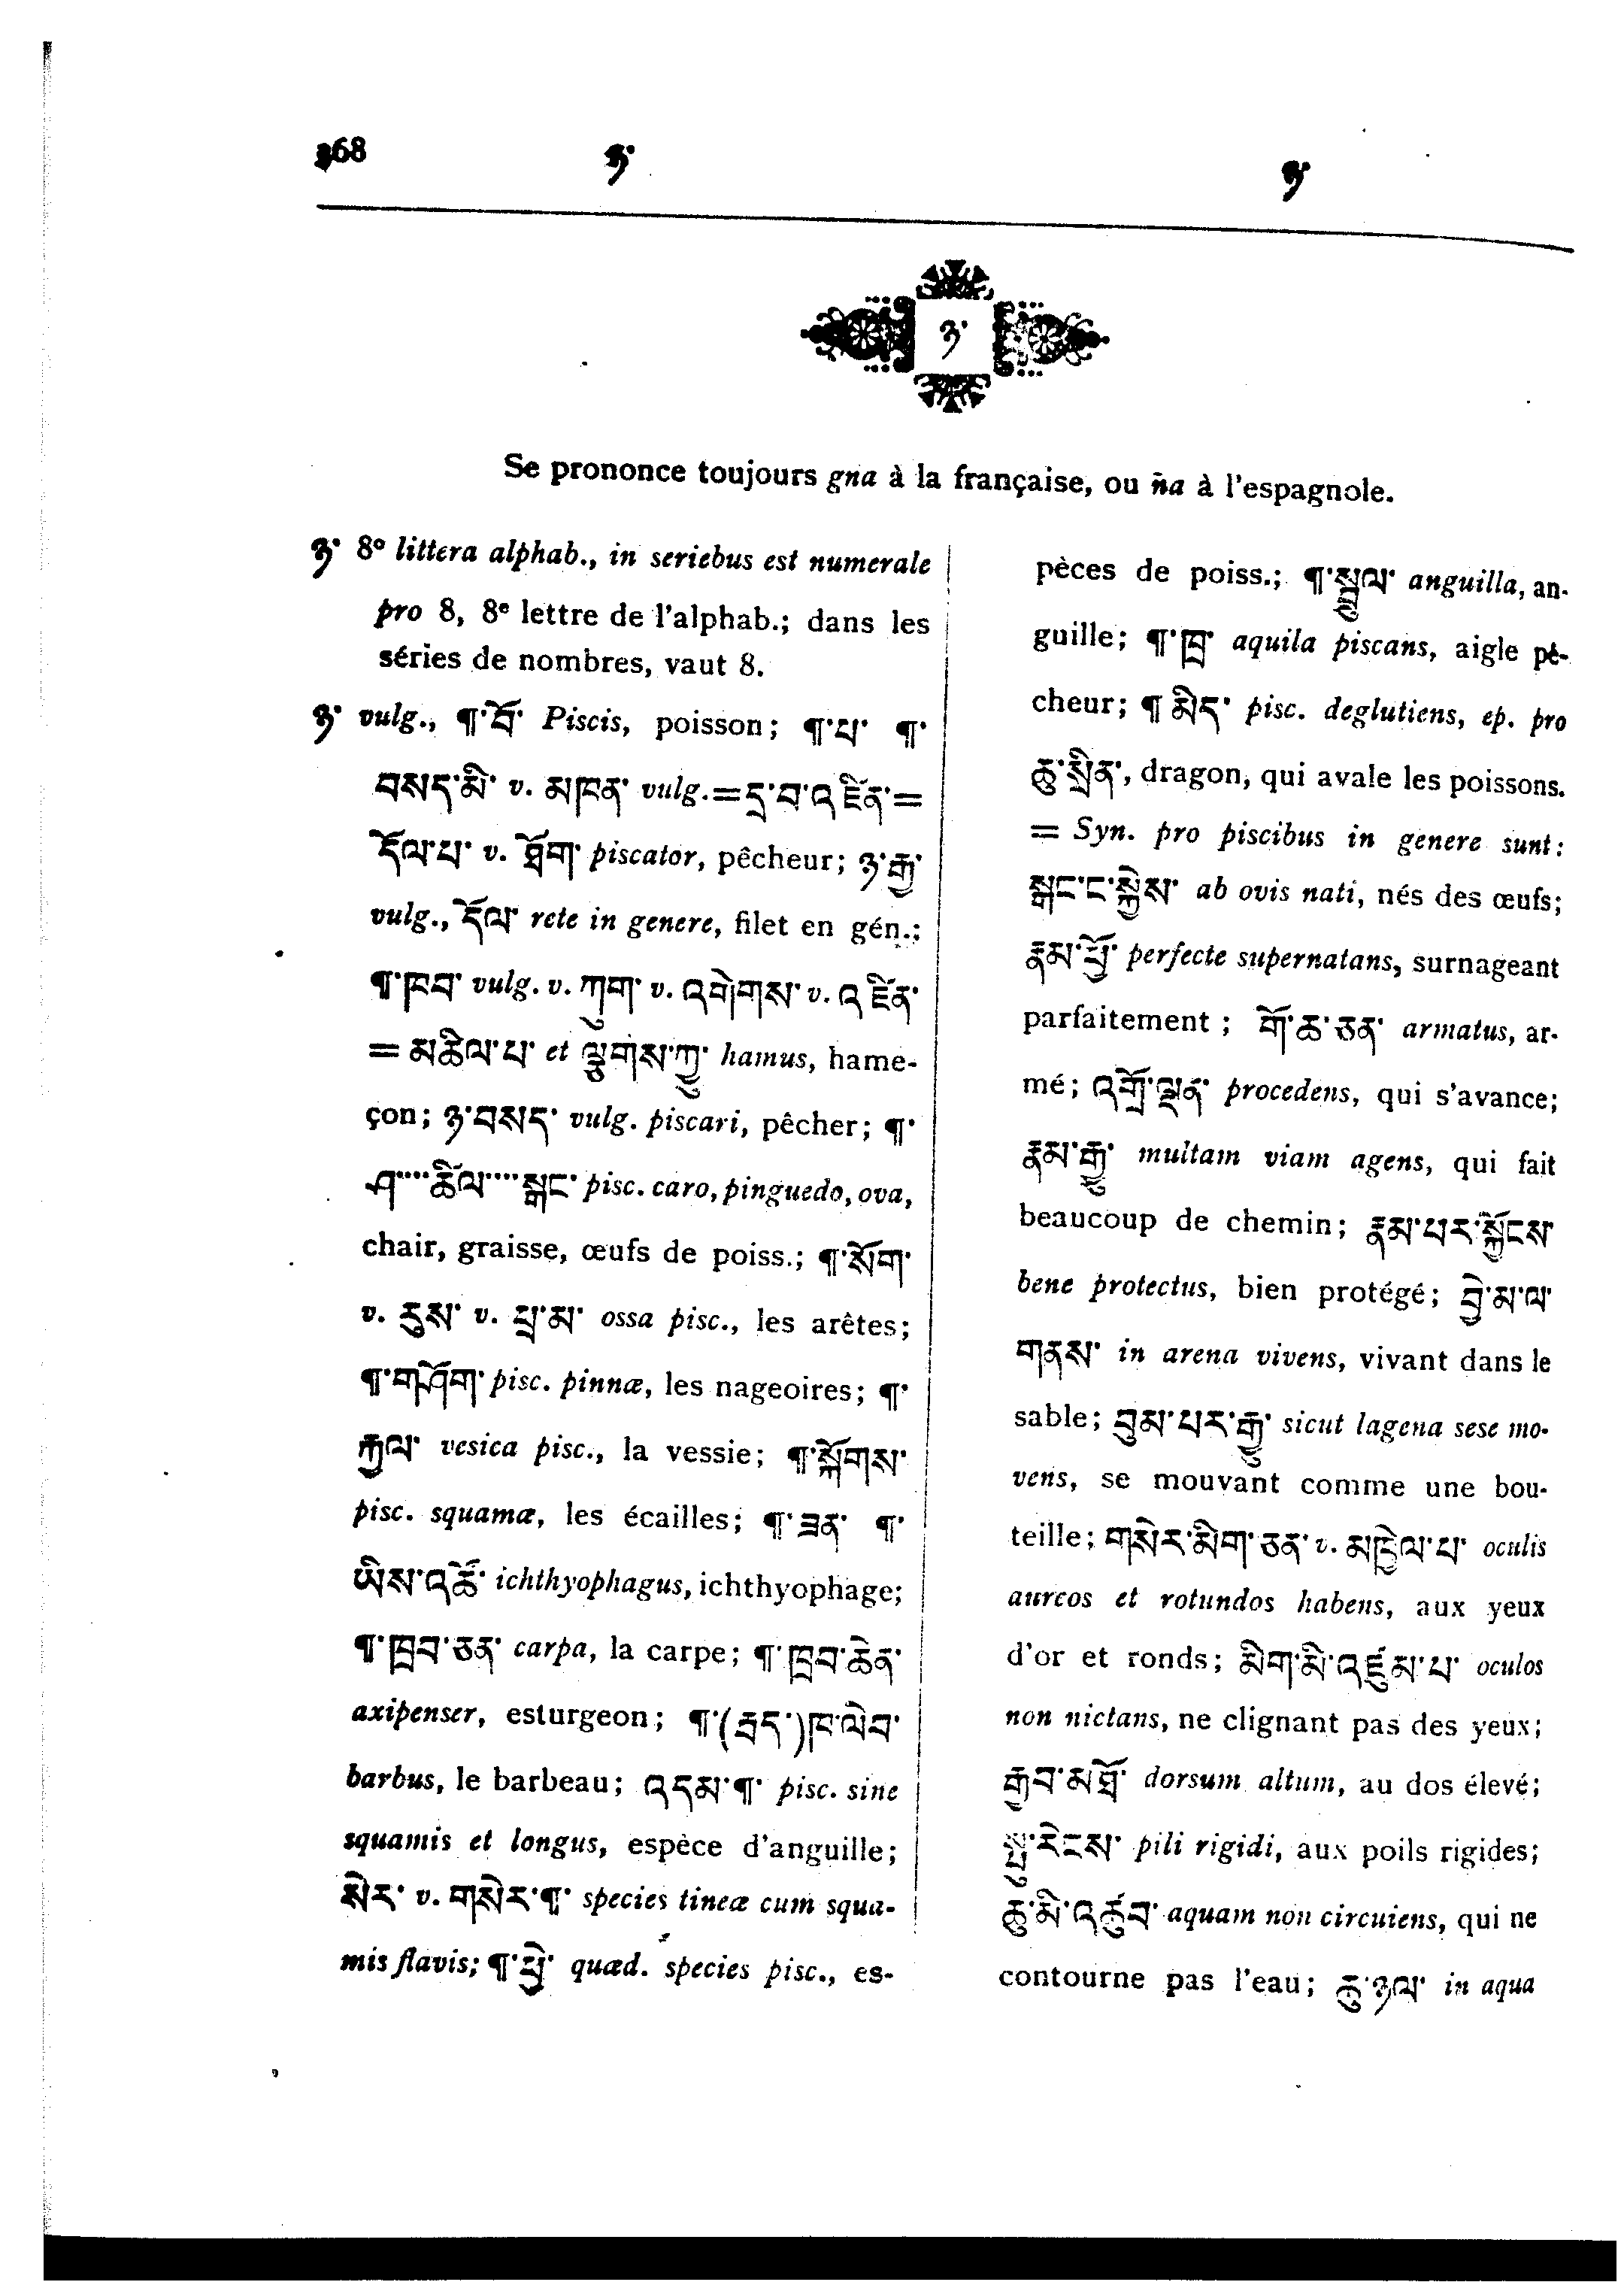 368 ཉ་ ཉ་
ཉ་
Se prononce toujours gna à la française, ou ña à l'espagnole.
ཉ་ 8º littera alphab., in seriebus est numerale
pro 8, 8e lettre de l'alphab.; dans les
séries de nombres, vaut 8.
ཉ་ vulg., ¶་བོ་ Piscis, poisson; ¶་པ་ ¶་
བསད་མི་ v. མཁན་ vulg.=དྲ་བ་འཛིན་=
དོལ་པ་ v. ཐོག་ piscator, pêcheur; ཉ་རྒྱ་
vulg., དོལ་ rete in genere, filet en gén.;
¶་ཁབ་ vulg. v. ཀུག་ v. འགེགས་ v. འཛིན་
= མཆིལ་པ་ et ལྕུགས་ཀྱུ་ hamus, hame-
çon; ཉ་བསད་ vulg. piscari, pêcher; ¶་
ཤ་...ཚིལ་...སྒང་ pisc. caro, pinguedo, ova,
chair, graisse, œufs de poiss.; ¶་སོག་
v. རུས་ v. ཕྲ་མ་ ossa pisc., les arêtes;
¶་གཤོག་ pisc. pinnæ, les nageoires; ¶་
རྐྱལ་ vesica pisc., la vessie; ¶་སྐོགས་
pisc. squamæ, les écailles; ¶་ཟན་ ¶་
ཡིས་འཚོ་ ichthyophagus, ichthyophage;
¶་ཁྲབ་ཅན་ carpa, la carpe; ¶་ཁྲབ་ཆེན་
axipenser, esturgeon; ¶་(རྦད་)ཁ་ལེབ་
barbus, le barbeau; འདམ་¶་ pisc. sine
squamis et longus, espèce d'anguille;
སེར་ v. གསེར་¶་ species tineæ cum squa-
mis flavis; ¶་ཕྱེ་ quæd. species pisc., es-
pèces de poiss.; ¶་སྦྲུལ་ anguilla, an-
guille; ¶་ཁྲ་ aquila piscans, aigle pê-
cheur; ¶ མིད་ pisc. deglutiens, ep. pro
ཆུ་སྲིན་, dragon, qui avale les poissons.
= Syn. pro piscibus in genere sunt:
སྒང་ང་སྐྱེས་ ab ovis nati, nés des œufs;
རྣམ་ཕྱོ་ perfecte supernatans, surnageant
parfaitement; གོ་ཆ་ཅན་ armatus, ar-
mé; འགྲོ་ལྡན་ procedens, qui s'avance;
རྣམ་རྒྱུ་ multam viam agens, qui fait
beaucoup de chemin; རྣམ་པར་སྐྱོངས
bene protectus, bien protégé; བྱེ་མ་ལ་
གནས་ in arena vivens, vivant dans le
sable; བུམ་པར་རྒྱུ་ sicut lagena sese mo-
vens, se mouvant comme une bou-
teille; གསེར་མིག་ཅན་ v. མཁྱིལ་པ་ oculis
aureos et rotundos habens, aux yeux
d'or et ronds; མིག་མི་འཛུམ་པ་ oculos
non nictans, ne clignant pas des yeux;
རྒྱབ་མཐོ་ dorsum altum, au dos élevé;
སྤུ་རེངས་ pili rigidi, aux poils rigides;
ཆུ་མི་འཛུབ་ aquam non circuiens, qui ne
contourne pas l'eau; ཆུ་ཉལ་ in aqua